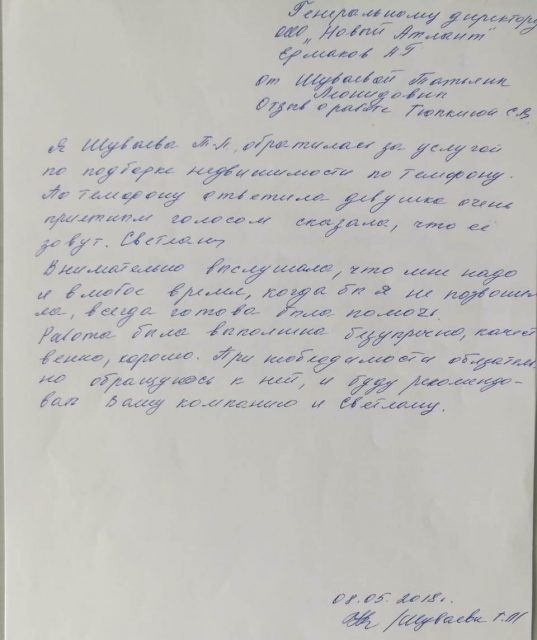 Генеральному директору
ООО "Новый Атлант"
Ермаков А Г
от Шуваевой Татьяны
Леонидовны
Отзыв о работе Тюпкиной С.В.
Я Шуваева Т.Л. обратилась за услугой
по подборке недвижимости по телефону.
По телефону ответила девушка очень
приятным голосом сказала, что её
зовут. Светлана
Внимательно выслушала, что мне надо
и в любое время, когда бы я не позвони-
ла, всегда готова была помочь.
Работа была выполнена безупречно, качест
венно, хорошо. При необходимости обязатель
но обращусь к ней, и буду рекомендо-
вать Вашу компанию и Светлану.
08.05.2018г.
/Шуваева Т.Л